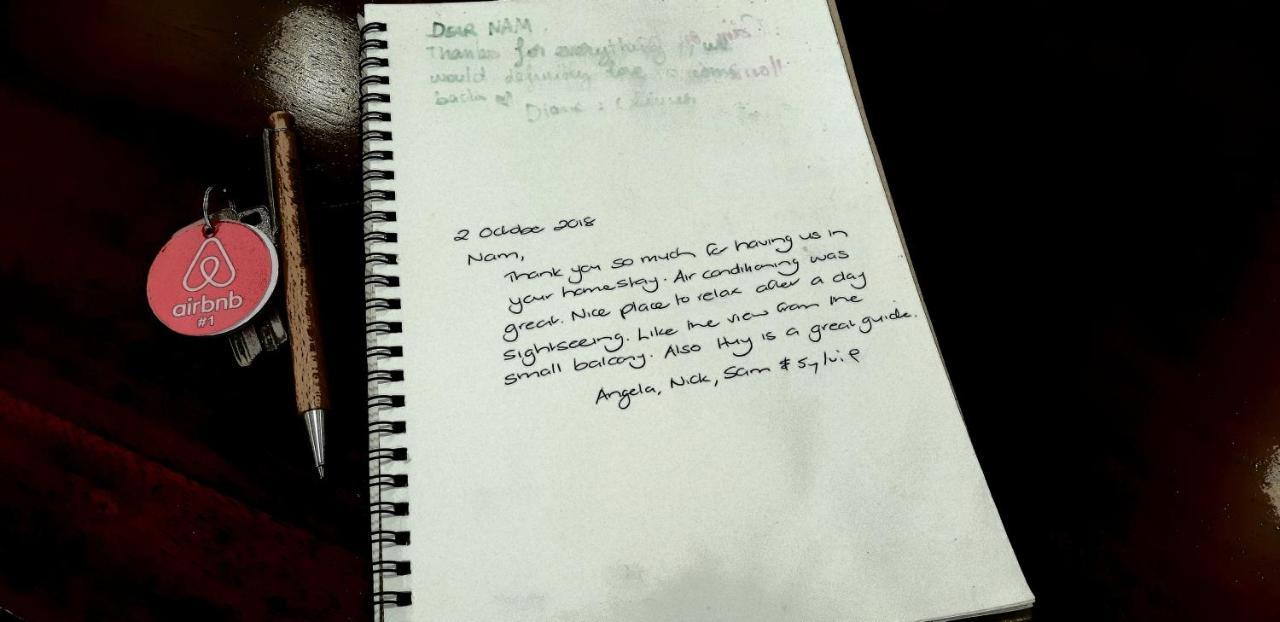 airbnb
#1
DEAR NAM
Thanks for everything we
would definitley love to
back
2 Octobe 2018
Nam,
Thank you so much for having us in
your homestay. Air conditioning was
great. Nice place to relax after a day
sightseeing. Like the view from the
small balcony. Also Huy is a great guide.
Angela, Nick, Sam & Sylvie